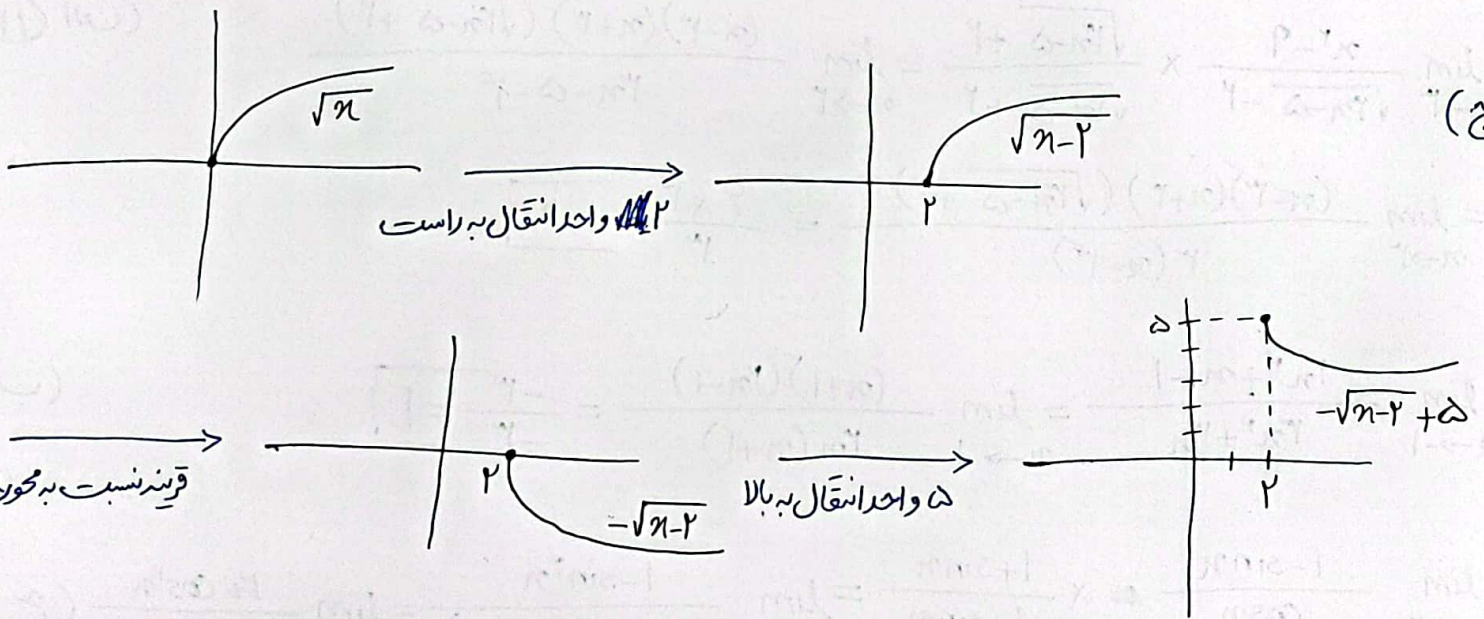 ج)
√x
۲ واحد انتقال به راست
√x-۲
۲
قرینه نسبت به محور
۲
-√x-۲
۵ واحد انتقال به بالا
۵
-√x-۲ +۵
۲